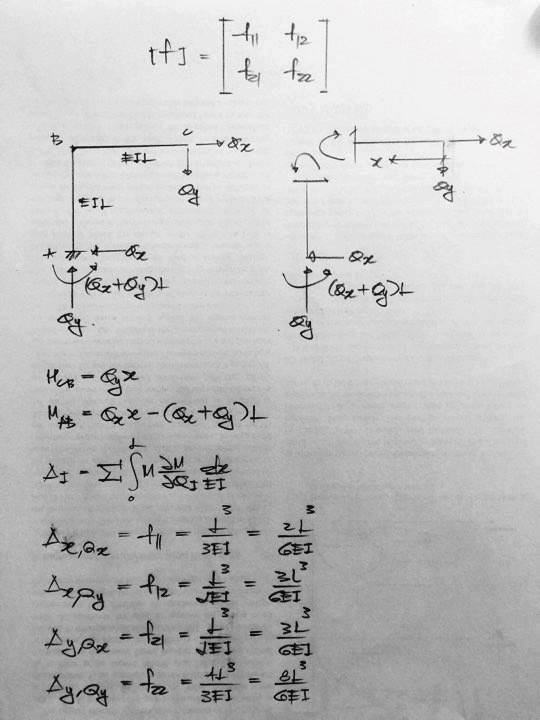 [f] = [f11 f12
f21 f22]
B C Qx
EI L
Qy
EI L
A Qx
(Qx+Qy)L
Qy
x Qx
Qy
Qx
(Qx+Qy)L
Qy
M_CB = Qy x
M_AB = Qx x - (Qx + Qy) L
Δ_I = Σ ∫₀ᴸ M ∂M/∂Q_I dx/EI
Δx,Qx = f11 = L³/3EI = 2L³/6EI
Δx,Qy = f12 = L³/2EI = 3L³/6EI
Δy,Qx = f21 = L³/2EI = 3L³/6EI
Δy,Qy = f22 = 4L³/3EI = 8L³/6EI